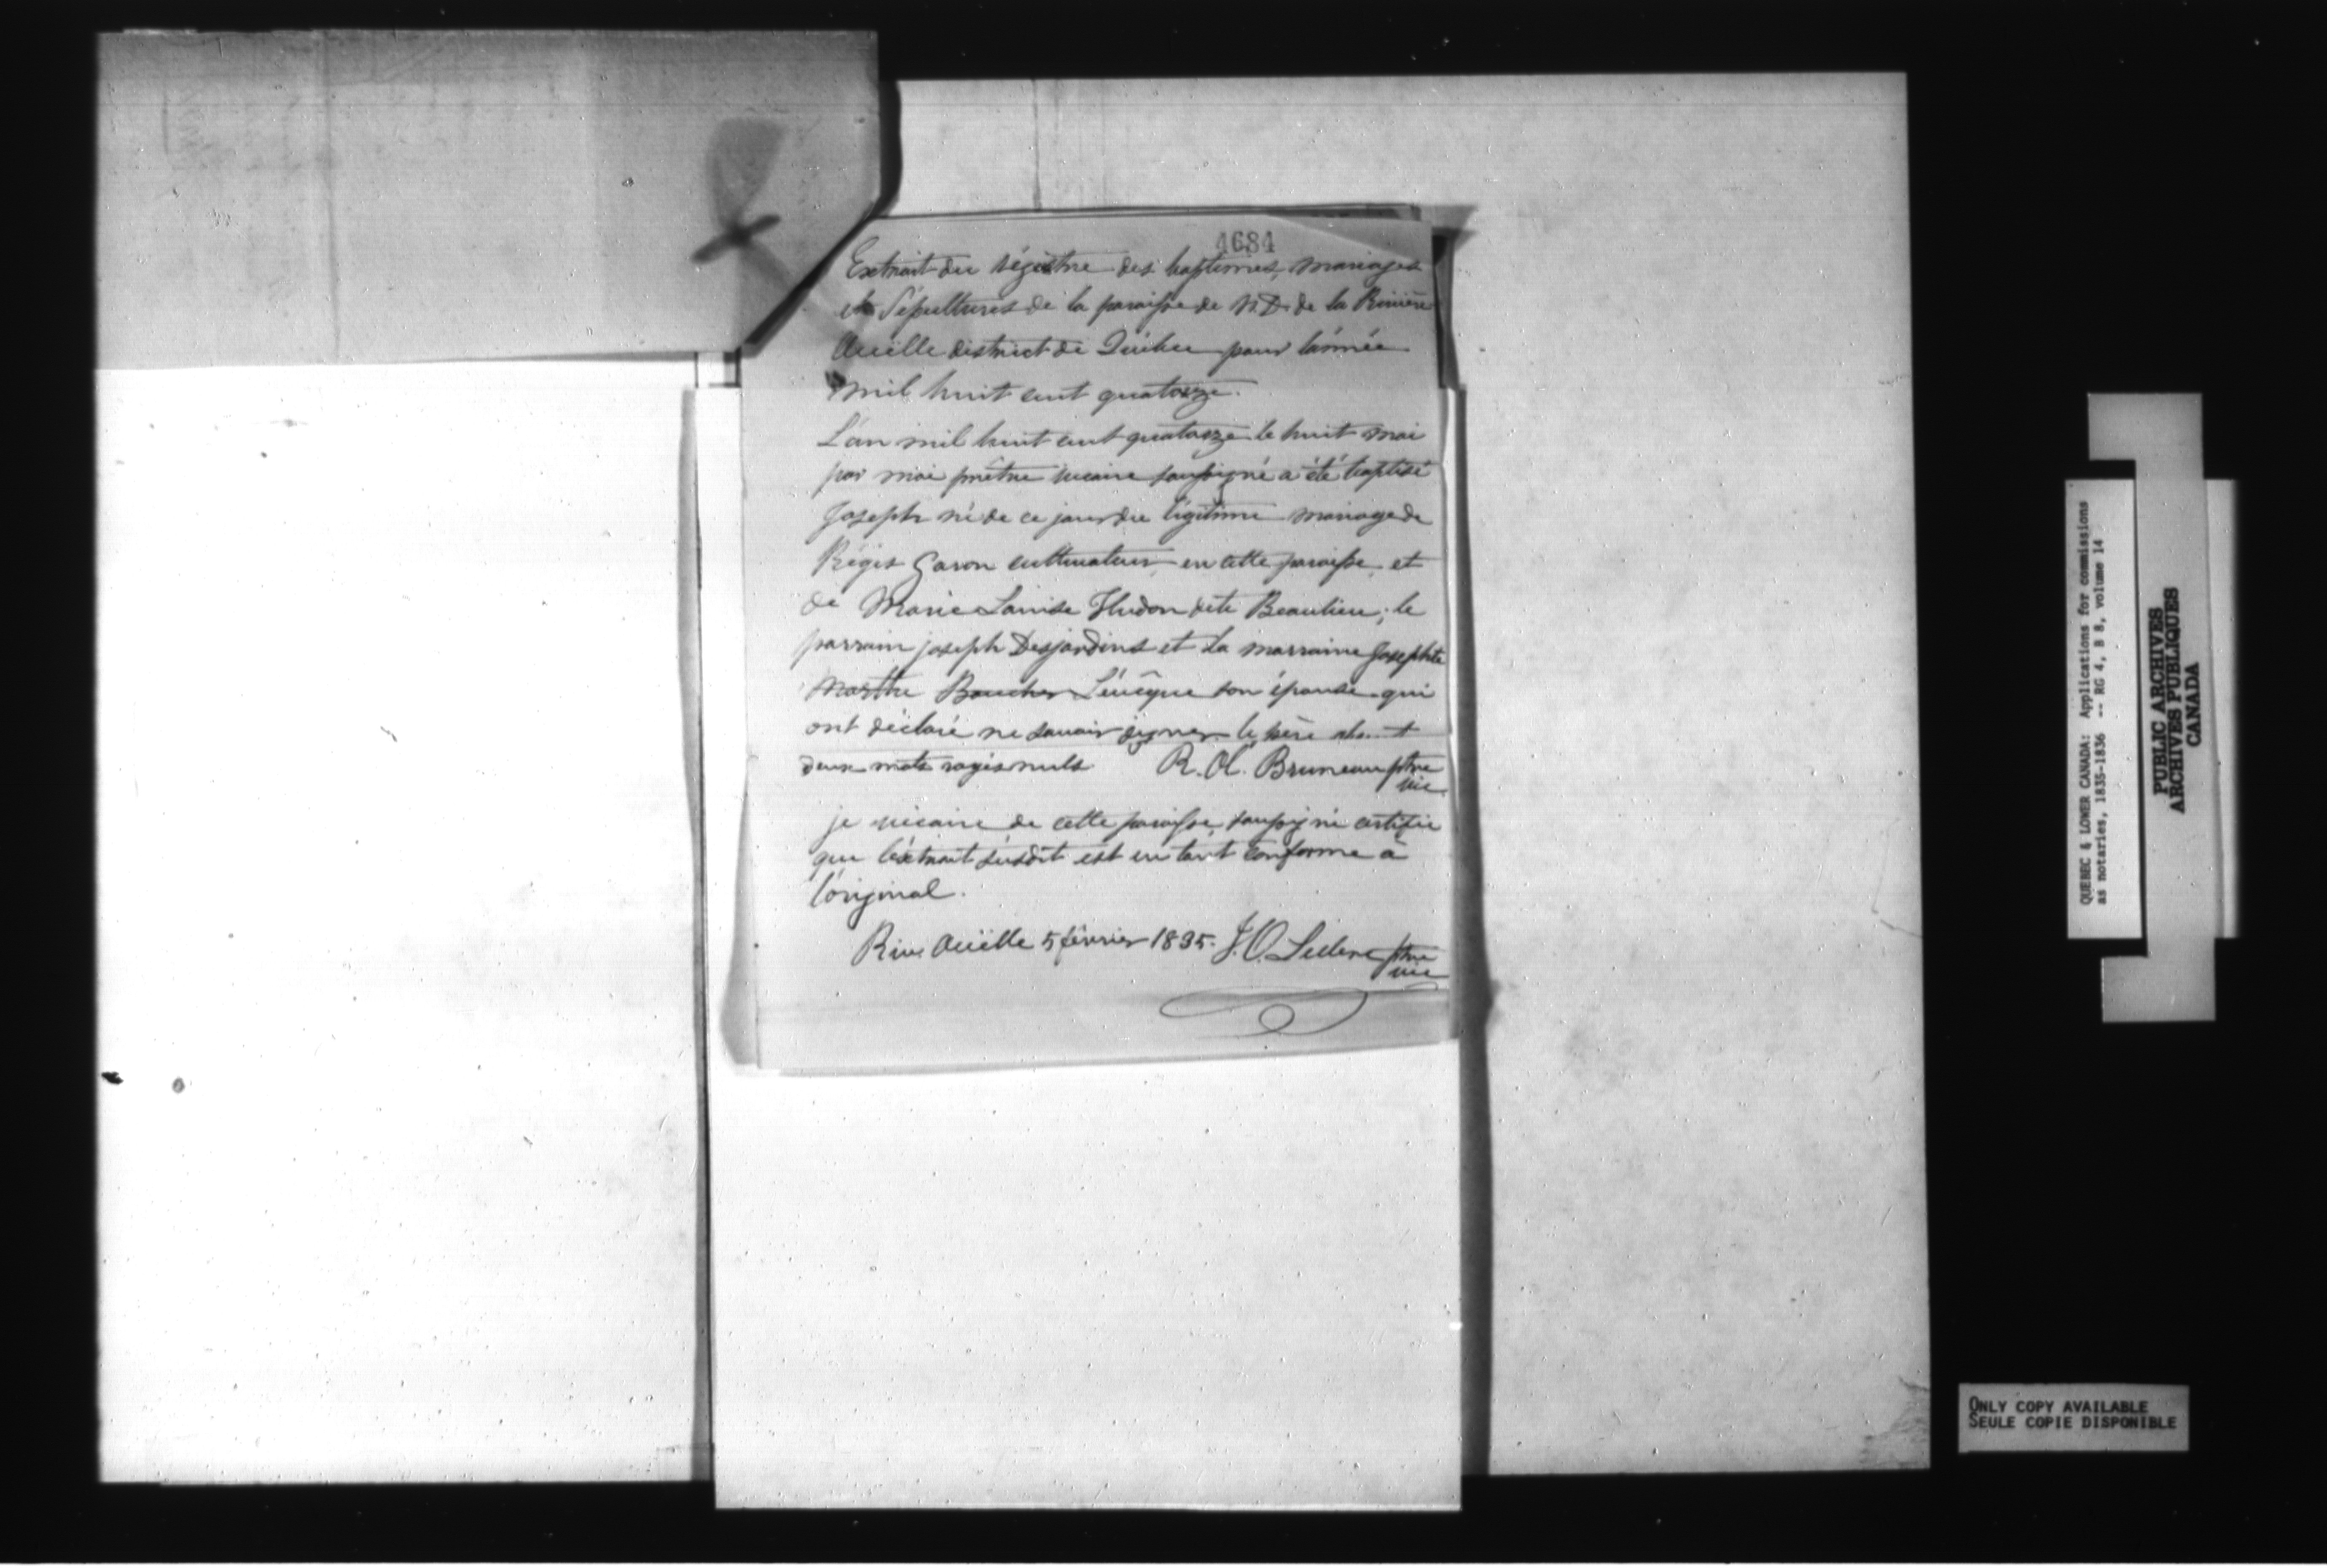 4684
Extrait du régistre des baptêmes, mariages
et Sépultures de la paroisse de N.D. de la Rivière
Ouëlle district de Québec pour l'année
mil huit cent quatorze.
L'an mil huit cent quatorze le huit mai
par moi prêtre vicaire soussigné a été baptisé
Joseph né de ce jour du légitime mariage de
Régis Garon cultivateur, en cette paroisse, et
de Marie Louise Hudon dite Beaulieu; le
parrain joseph Desjardins et la marraine Josephte
Marthe Boucher Lévêque son épouse qui
ont déclaré ne savoir signer le père
deux mots rayés nuls R. Ol. Bruneau ptre
vic.
je vicaire de cette paroisse, soussigné certifie
que l'extrait susdit est en tout conforme à
l'original.
Riv. Ouëlle 5 février 1835. J. O. Leclerc ptre
vic
QUEBEC & LOWER CANADA: Applications for commissions
as notaries, 1835-1836 -- RG 4, B 8, volume 14
PUBLIC ARCHIVES
ARCHIVES PUBLIQUES
CANADA
ONLY COPY AVAILABLE
SEULE COPIE DISPONIBLE